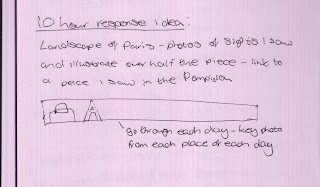 10 hour response idea:
Landscape of Paris - photos of sights I saw
and illustrate over half the piece - link to
a peice I saw in the Pompidou
go through each day - key photo
from each place or each day